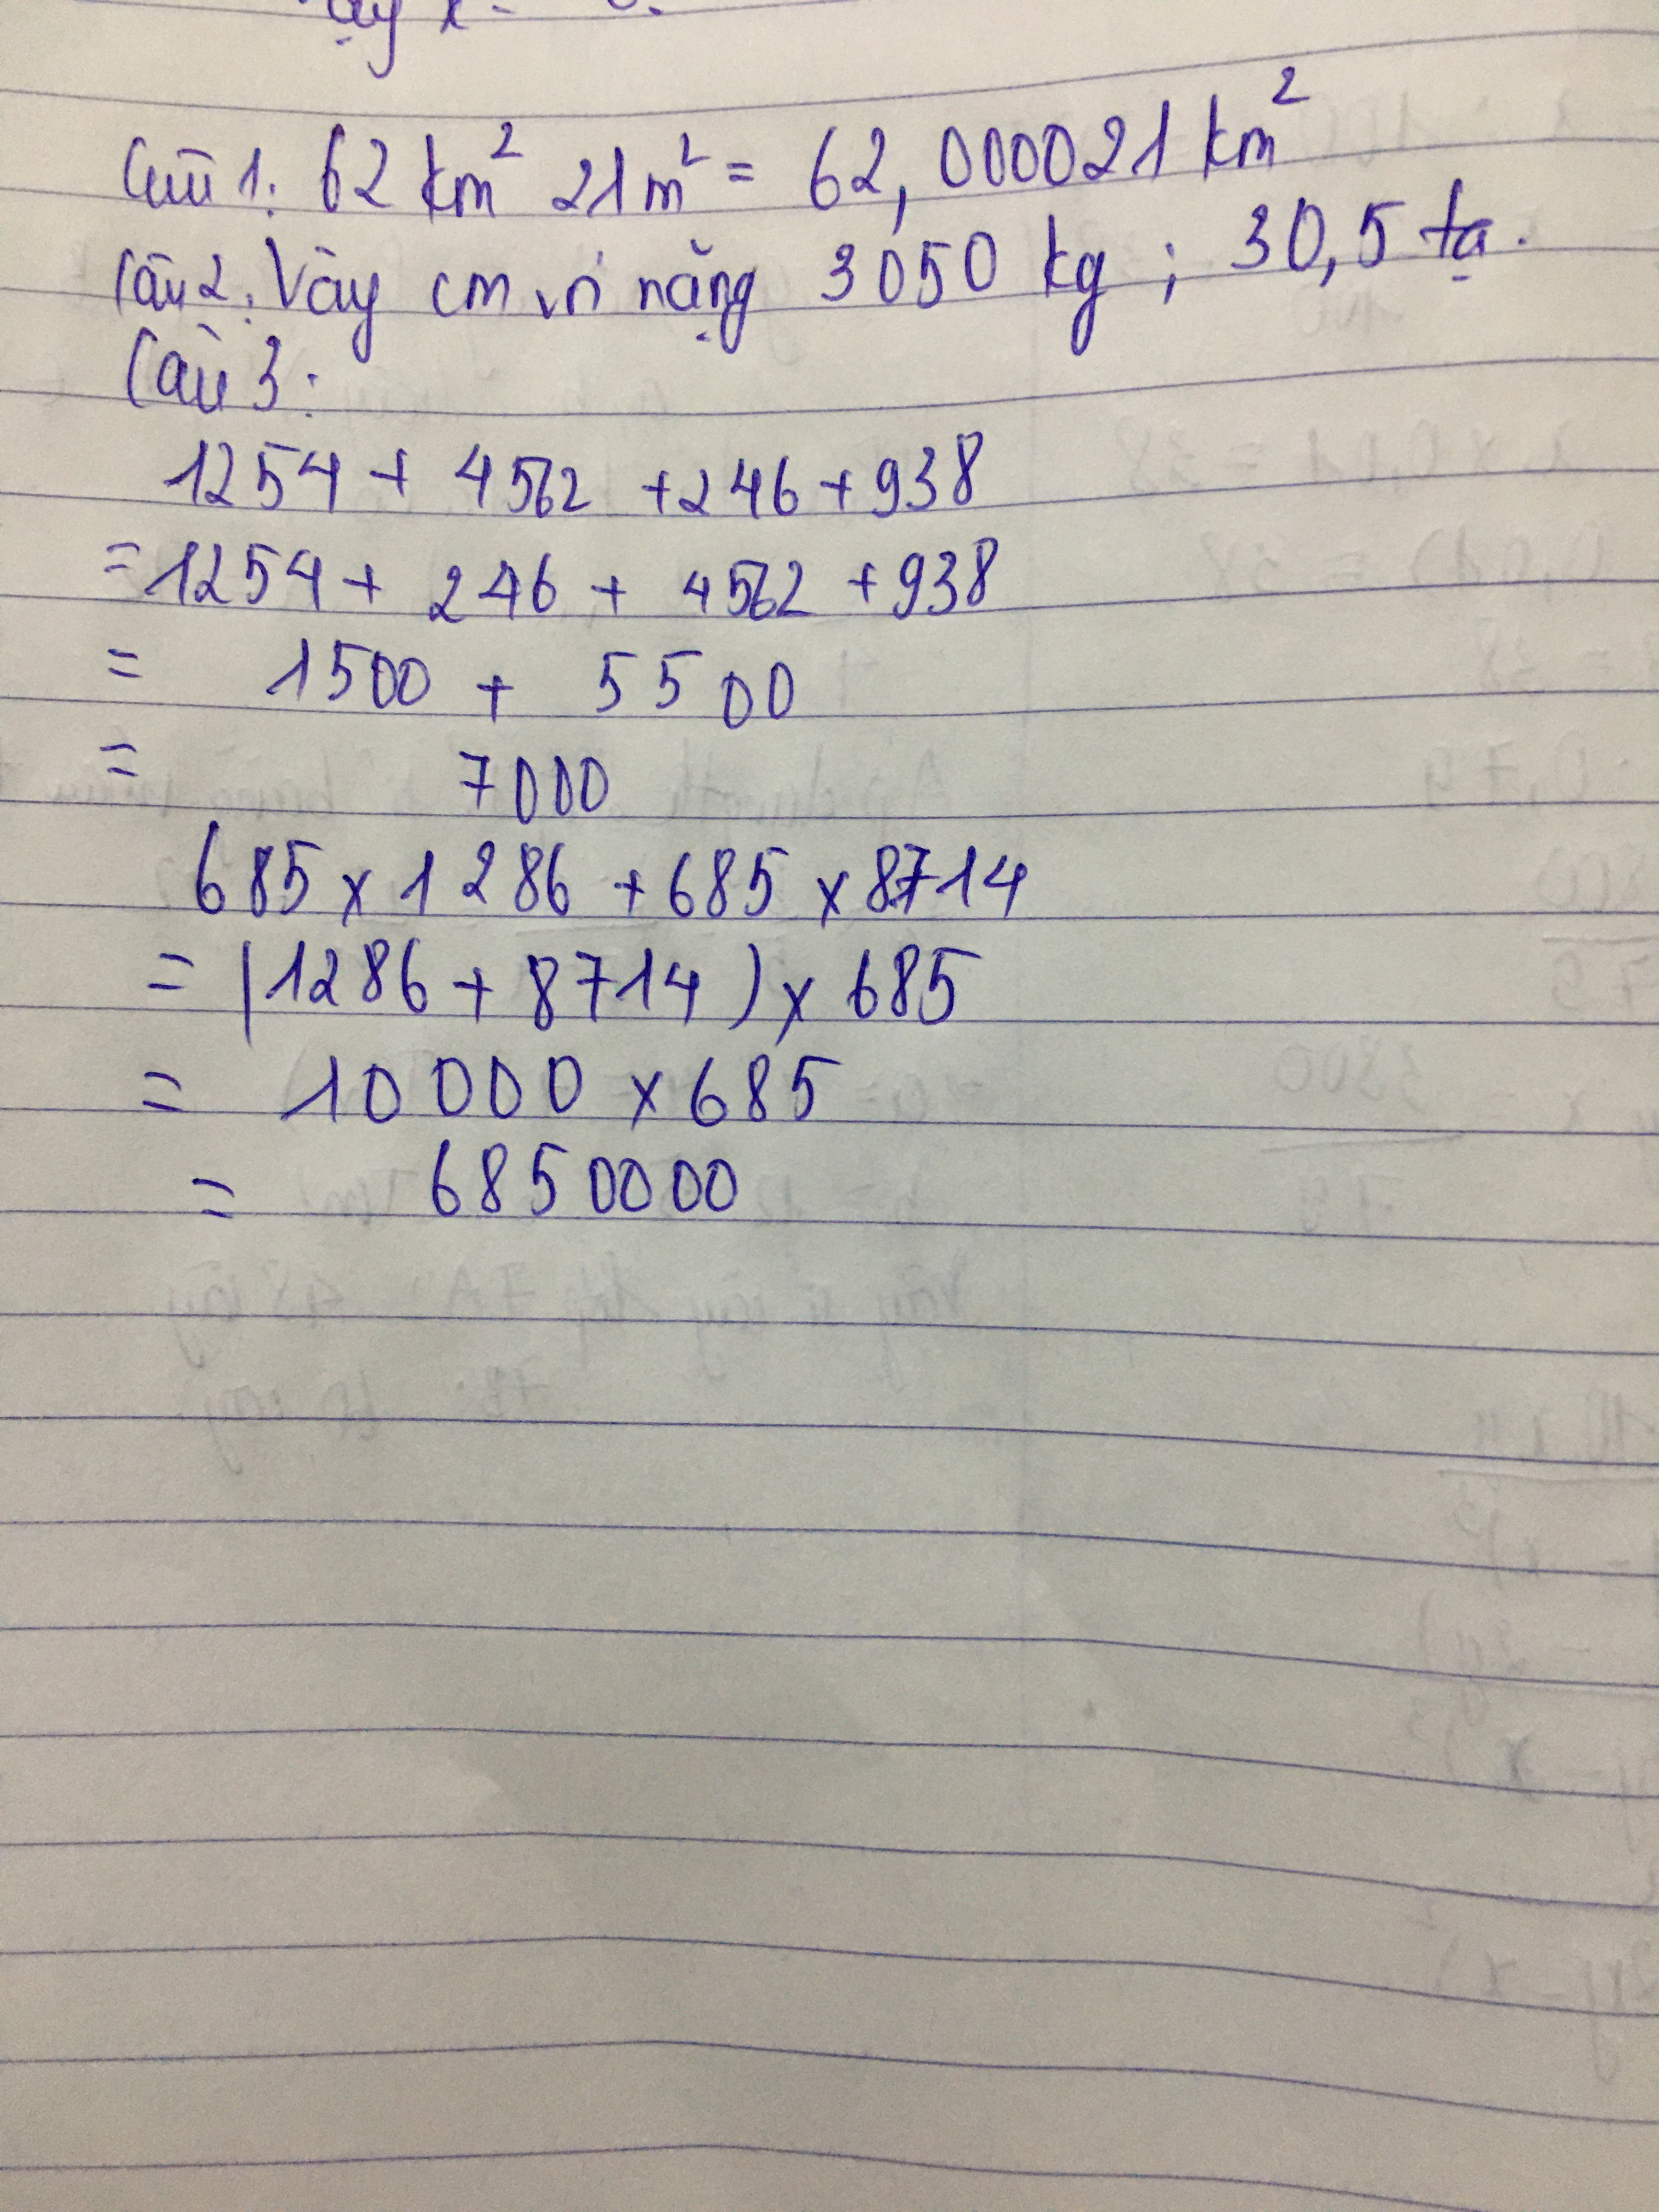 ạy x =
Câu 1: 62 km² 21 m² = 62,000021 km²
Câu 2: Vậy nặng 3050 kg ; 30,5 tạ.
Câu 3:
1254 + 4562 + 246 + 938
= 1254 + 246 + 4562 + 938
= 1500 + 5500
= 7000
685 x 1286 + 685 x 8714
= (1286 + 8714) x 685
= 10000 x 685
= 6850000